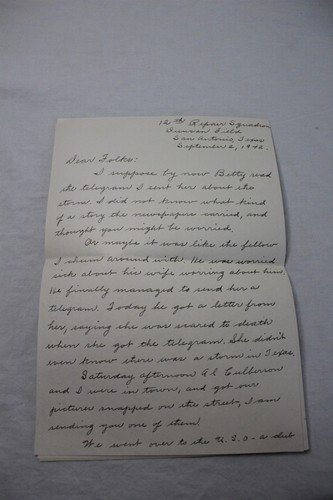 12th Repair Squadron
Duncan Field
San Antonio, Texas
September 2, 1942.
Dear Folks:
I suppose by now Betty read
the telegram I sent her about the
storm. I did not know what kind
of a story the newspapers carried, and
thought you might be worried.
Or maybe it was like the fellow
I chum around with. He was worried
sick about his wife worring about him.
He finally managed to send her a
telegram. Today he got a letter from
her, saying she was scared to death
when she got the telegram. She didn't
even know there was a storm in Texas.
Saturday afternoon Al Culberson
and I were in town, and got our
pictures snapped on the street, I am
sending you one of them.
We went over to the U.S.O - a club